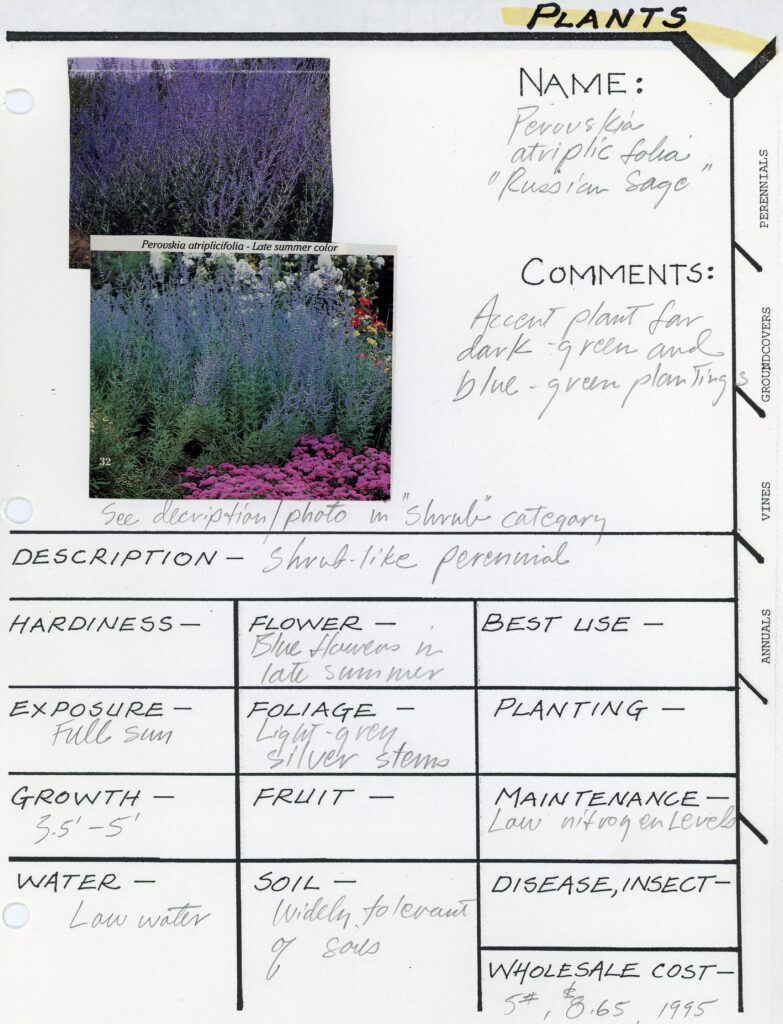 PLANTS
NAME:
Perovskia
atriplicifolia
"Russian Sage"
Perovskia atriplicifolia - Late summer color
32
COMMENTS:
Accent plant for
dark-green and
blue-green plantings
See decription/photo in "shrub" category
DESCRIPTION - Shrub-like perennial
HARDINESS -
FLOWER -
Blue flowers in
late summer
BEST USE -
EXPOSURE -
Full sun
FOLIAGE -
Light-grey
silver stems
PLANTING -
GROWTH -
3.5' - 5'
FRUIT -
MAINTENANCE -
Low nitrogen Levels
WATER -
Low water
SOIL -
Widely tolerant
of soils
DISEASE, INSECT -
WHOLESALE COST -
5#, $8.65, 1995
PERENNIALS
GROUNDCOVERS
VINES
ANNUALS